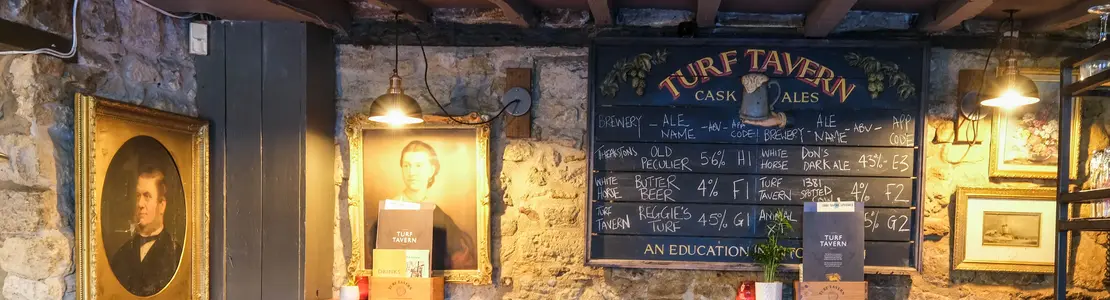 TURF TAVERN
CASK ALES
BREWERY - ALE NAME - ABV - APP CODE!
BREWERY - ALE NAME - ABV - APP CODE
THEAKSTONS OLD PECULIER 56% H1
WHITE HORSE DON'S DARK ALE 43% - E3
WHITE HORSE BUTTER BEER 4% F1
TURF TAVERN 1381 SPOTTED COW 4% F2
TURF TAVERN REGGIE'S TURF 45% G1
ANIMAL 5% G2
AN EDUCATION
TURF TAVERN
TURF TAVERN